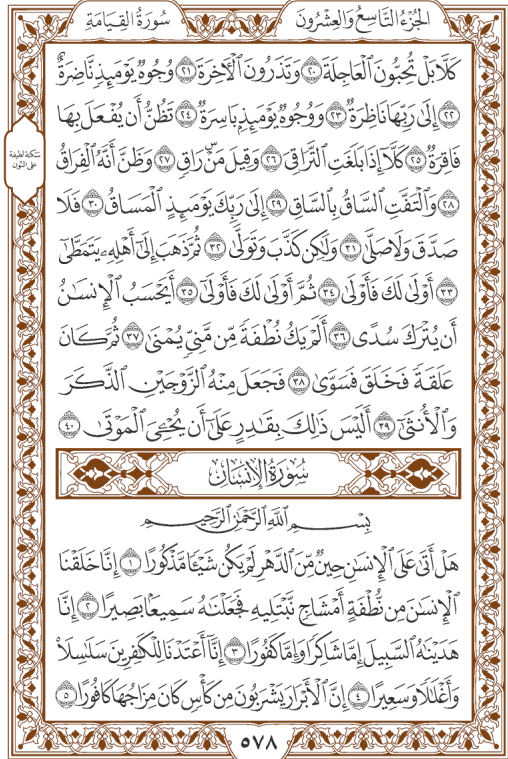 سُورَةُ القِيَامَةِ
الجُزْءُ التَّاسِعُ وَالعِشْرُونَ
كَلَّا بَلْ تُحِبُّونَ ٱلْعَاجِلَةَ ٢٠ وَتَذَرُونَ ٱلْأٓخِرَةَ ٢١ وُجُوهٌ يَوْمَئِذٍ نَّاضِرَةٌ
٢٢ إِلَىٰ رَبِّهَا نَاظِرَةٌ ٢٣ وَوُجُوهٌ يَوْمَئِذٍۭ بَاسِرَةٌ ٢٤ تَظُنُّ أَن يُفْعَلَ بِهَا
فَاقِرَةٌ ٢٥ كَلَّآ إِذَا بَلَغَتِ ٱلتَّرَاقِيَ ٢٦ وَقِيلَ مَنْۜ رَاقٍ ٢٧ وَظَنَّ أَنَّهُ ٱلْفِرَاقُ
٢٨ وَٱلْتَفَّتِ ٱلسَّاقُ بِٱلسَّاقِ ٢٩ إِلَىٰ رَبِّكَ يَوْمَئِذٍ ٱلْمَسَاقُ ٣٠ فَلَا
صَدَّقَ وَلَا صَلَّىٰ ٣١ وَلَٰكِن كَذَّبَ وَتَوَلَّىٰ ٣٢ ثُمَّ ذَهَبَ إِلَىٰٓ أَهْلِهِۦ يَتَمَطَّىٰٓ
٣٣ أَوْلَىٰ لَكَ فَأَوْلَىٰ ٣٤ ثُمَّ أَوْلَىٰ لَكَ فَأَوْلَىٰٓ ٣٥ أَيَحْسَبُ ٱلْإِنسَٰنُ
أَن يُتْرَكَ سُدًى ٣٦ أَلَمْ يَكُ نُطْفَةً مِّن مَّنِيٍّ يُمْنَىٰ ٣٧ ثُمَّ كَانَ
عَلَقَةً فَخَلَقَ فَسَوَّىٰ ٣٨ فَجَعَلَ مِنْهُ ٱلزَّوْجَيْنِ ٱلذَّكَرَ
وَٱلْأُنثَىٰٓ ٣٩ أَلَيْسَ ذَٰلِكَ بِقَٰدِرٍ عَلَىٰٓ أَن يُحْـِۧيَ ٱلْمَوْتَىٰ ٤٠
سُورَةُ الإِنسَانِ
بِسْمِ ٱللَّهِ ٱلرَّحْمَٰنِ ٱلرَّحِيمِ
هَلْ أَتَىٰ عَلَى ٱلْإِنسَٰنِ حِينٌ مِّنَ ٱلدَّهْرِ لَمْ يَكُن شَيْـًٔا مَّذْكُورًا ١ إِنَّا خَلَقْنَا
ٱلْإِنسَٰنَ مِن نُّطْفَةٍ أَمْشَاجٍ نَّبْتَلِيهِ فَجَعَلْنَٰهُ سَمِيعًۢا بَصِيرًا ٢ إِنَّا
هَدَيْنَٰهُ ٱلسَّبِيلَ إِمَّا شَاكِرًا وَإِمَّا كَفُورًا ٣ إِنَّآ أَعْتَدْنَا لِلْكَٰفِرِينَ سَلَٰسِلَا۟
وَأَغْلَٰلًا وَسَعِيرًا ٤ إِنَّ ٱلْأَبْرَارَ يَشْرَبُونَ مِن كَأْسٍ كَانَ مِزَاجُهَا كَافُورًا ٥
سَكتَة لطيفة
على النّون
٥٧٨